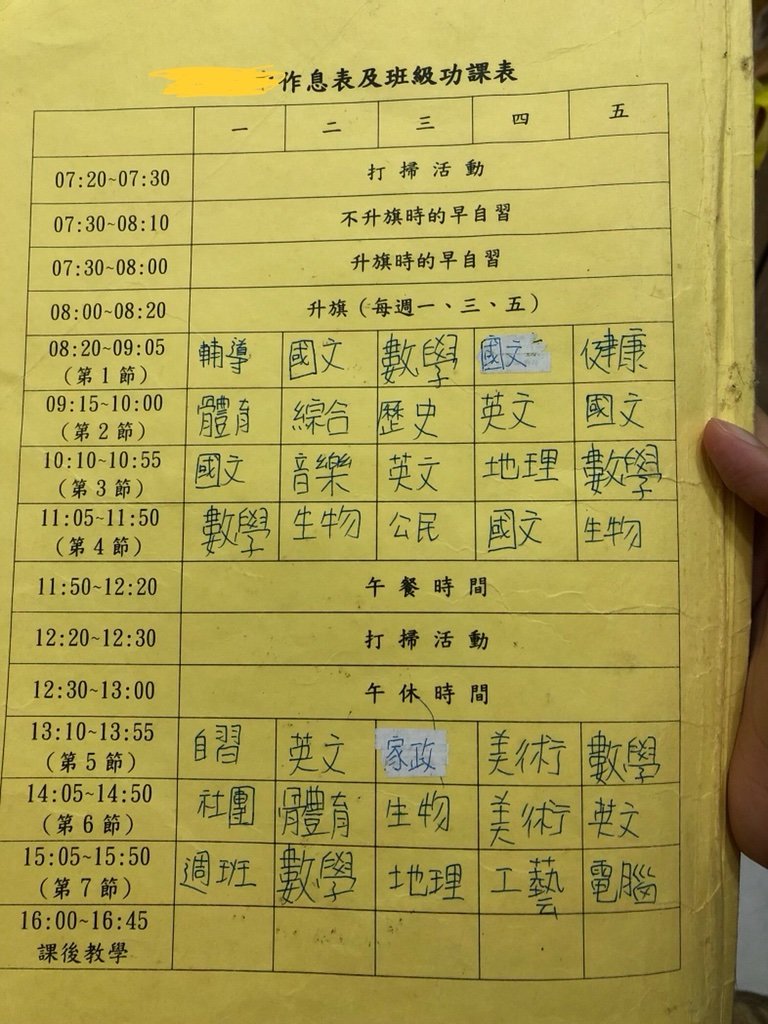 作息表及班級功課表
一 二 三 四 五
07:20~07:30 打掃活動
07:30~08:10 不升旗時的早自習
07:30~08:00 升旗時的早自習
08:00~08:20 升旗(每週一、三、五)
08:20~09:05 輔導 國文 數學 國文 健康
(第1節)
09:15~10:00 體育 綜合 歷史 英文 國文
(第2節)
10:10~10:55 國文 音樂 英文 地理 數學
(第3節)
11:05~11:50 數學 生物 公民 國文 生物
(第4節)
11:50~12:20 午餐時間
12:20~12:30 打掃活動
12:30~13:00 午休時間
13:10~13:55 自習 英文 家政 美術 數學
(第5節)
14:05~14:50 社團 體育 生物 美術 英文
(第6節)
15:05~15:50 週班 數學 地理 工藝 電腦
(第7節)
16:00~16:45
課後教學